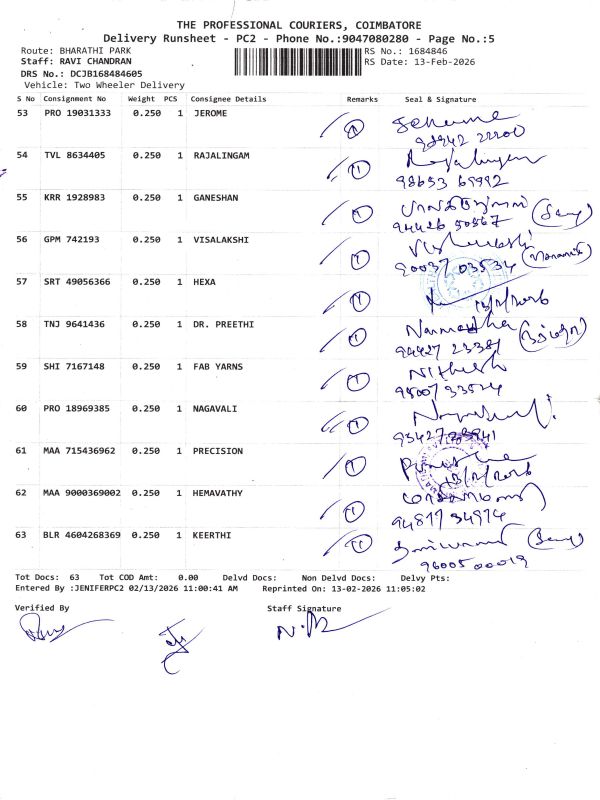 THE PROFESSIONAL COURIERS, COIMBATORE
Delivery Runsheet - PC2 - Phone No.:9047080280 - Page No.:5
Route: BHARATHI PARK RS No.: 1684846
Staff: RAVI CHANDRAN RS Date: 13-Feb-2026
DRS No.: DCJB168484605
Vehicle: Two Wheeler Delivery
S No Consignment No Weight PCS Consignee Details Remarks Seal & Signature
53 PRO 19031333 0.250 1 JEROME 1 Jerome
98942 22200
54 TVL 8634405 0.250 1 RAJALINGAM 1 Rajalingam
98653 69992
55 KRR 1928983 0.250 1 GANESHAN 1
94426 50567
56 GPM 742193 0.250 1 VISALAKSHI 1
90037 03534
57 SRT 49056366 0.250 1 HEXA 1
13/2/2026
58 TNJ 9641436 0.250 1 DR. PREETHI 1
94427 23381
59 SHI 7167148 0.250 1 FAB YARNS 1 Nithesh
60 PRO 18969385 0.250 1 NAGAVALI 1
61 MAA 715436962 0.250 1 PRECISION 1
13/2/2026
62 MAA 9000369002 0.250 1 HEMAVATHY 1
94817 34974
63 BLR 4604268369 0.250 1 KEERTHI 1
96005 00019
Tot Docs: 63 Tot COD Amt: 0.00 Delvd Docs: Non Delvd Docs: Delvy Pts:
Entered By :JENIFERPC2 02/13/2026 11:00:41 AM Reprinted On: 13-02-2026 11:05:02
Verified By Staff Signature